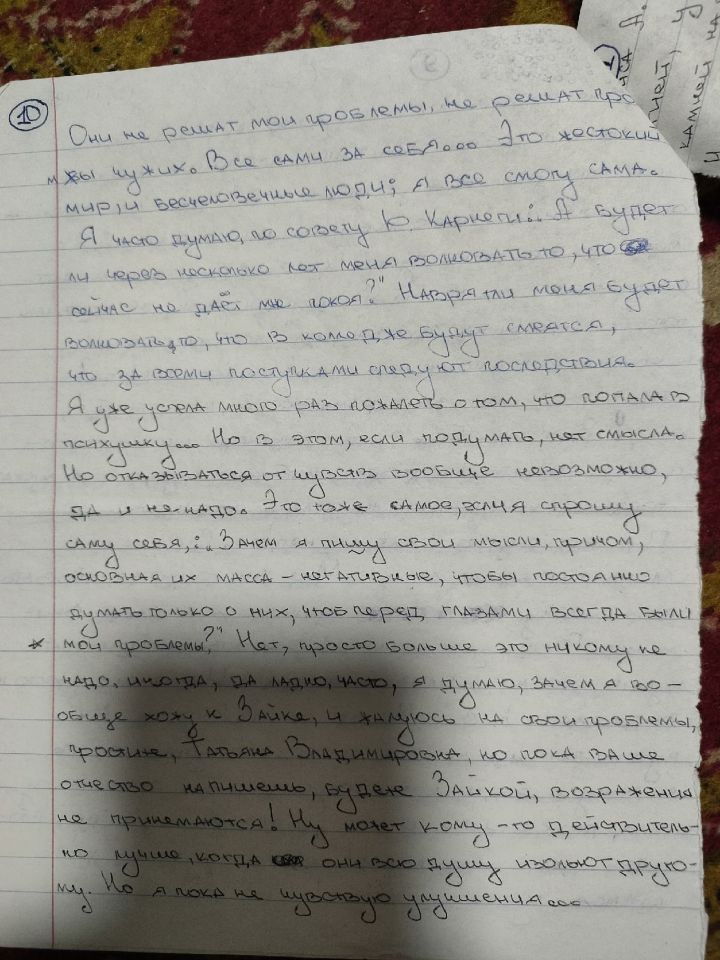 10
Они не решат мои проблемы, не решат про
мжы чужих. Все сами за себя... Это жестокий
мир, и бесчеловечные люди; я все смогу сама.
Я часто думаю, по совету Ю. Карнеги: „А будет
ли через несколько лет меня волновать то, что
сейчас не даёт мне покоя?" Наврятли меня будет
волновать, то, что в колледже будут смеятся,
что за всеми поступками следуют последствия.
Я уже успела много раз пожалеть о том, что попала в
психушку... Но в этом, если подумать, нет смысла.
Но отказываться от чувств вообще невозможно,
да и не надо. Это тоже самое, если я спрошу
саму себя,: „Зачем я пишу свои мысли, причом,
основная их масса - негативные, чтобы постоянно
думать только о них, чтоб перед глазами всегда были
* мои проблемы?" Нет, просто больше это никому не
надо. Иногда, да ладно, часто, я думаю, зачем я во-
обще хожу к Зайке, и жалуюсь на свои проблемы,
простите, Татьяна Владимировна, но пока ваше
отчество напишешь, будете Зайкой, возражения
не принемаются! Ну может кому-то действитель-
но лучше, когда они всю душу изольют друго-
му. Но я пока не чувствую улучшения...
са А.
камней на